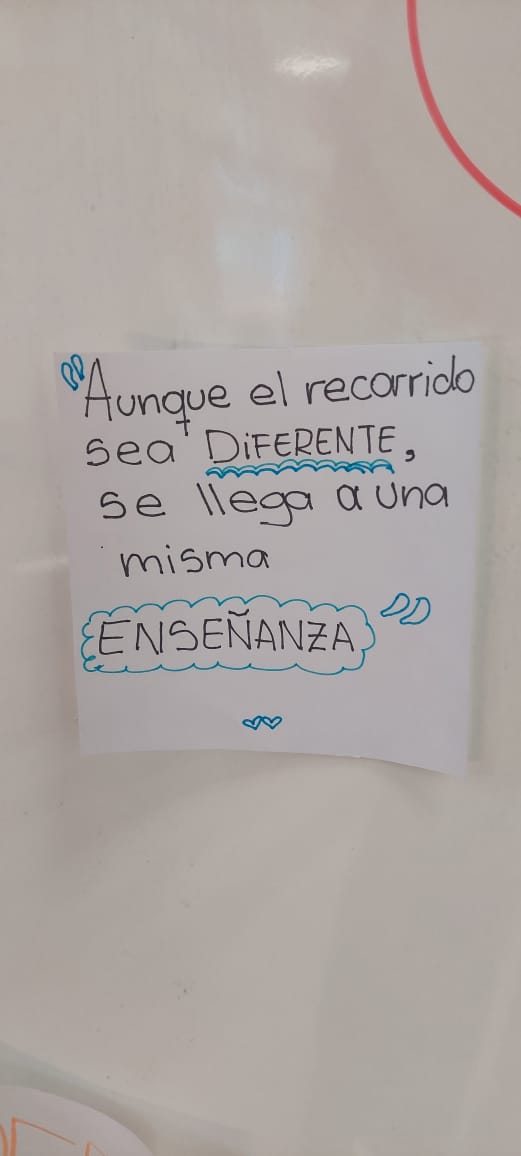 "Aunque el recorrido
sea DiFERENTE,
se llega a una
misma
ENSEÑANZA"